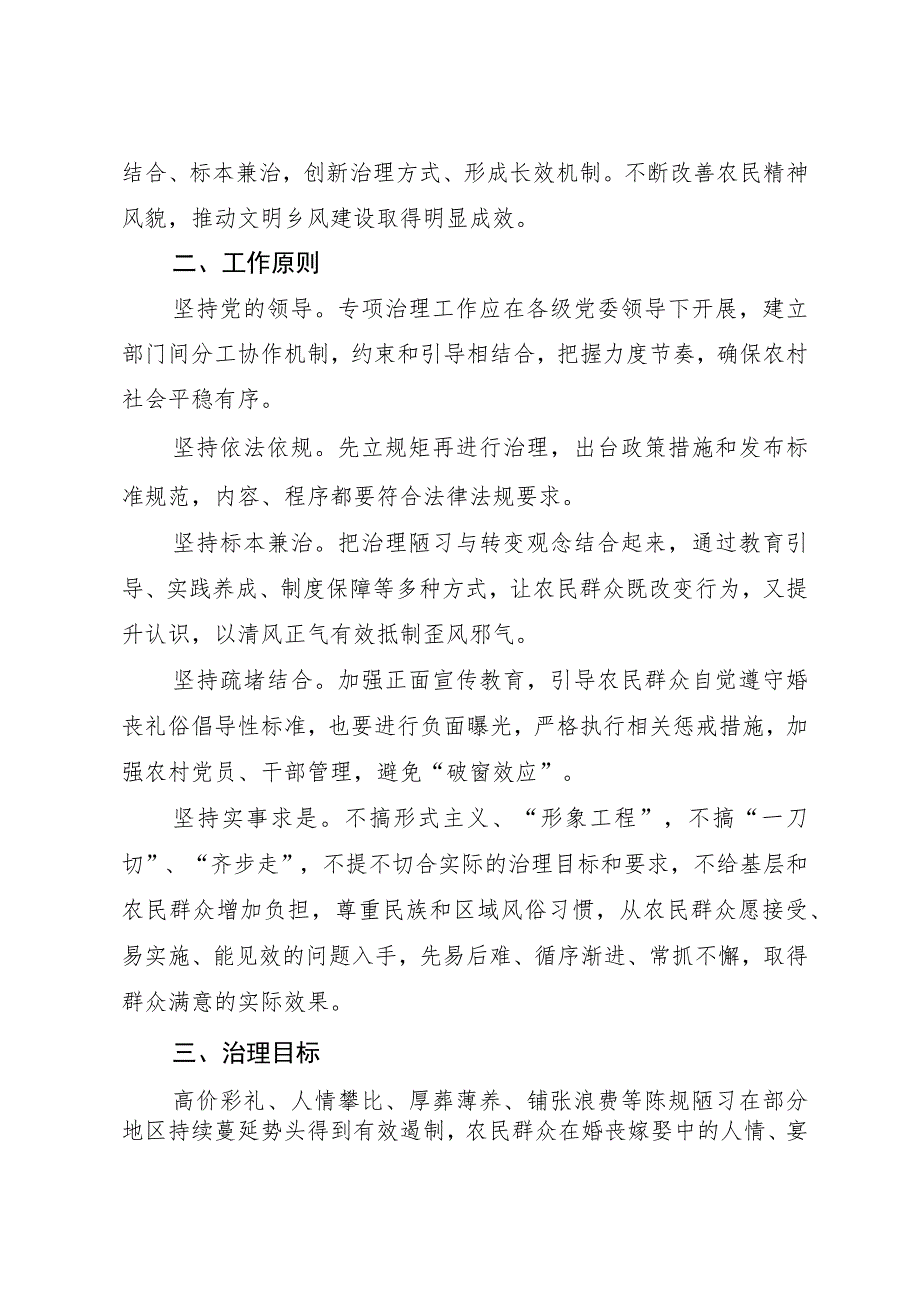 结合、标本兼治，创新治理方式、形成长效机制。不断改善农民精神
风貌，推动文明乡风建设取得明显成效。
二、工作原则
坚持党的领导。专项治理工作应在各级党委领导下开展，建立
部门间分工协作机制，约束和引导相结合，把握力度节奏，确保农村
社会平稳有序。
坚持依法依规。先立规矩再进行治理，出台政策措施和发布标
准规范，内容、程序都要符合法律法规要求。
坚持标本兼治。把治理陋习与转变观念结合起来，通过教育引
导、实践养成、制度保障等多种方式，让农民群众既改变行为，又提
升认识，以清风正气有效抵制歪风邪气。
坚持疏堵结合。加强正面宣传教育，引导农民群众自觉遵守婚
丧礼俗倡导性标准，也要进行负面曝光，严格执行相关惩戒措施，加
强农村党员、干部管理，避免“破窗效应”。
坚持实事求是。不搞形式主义、“形象工程”，不搞“一刀
切”、“齐步走”，不提不切合实际的治理目标和要求，不给基层和
农民群众增加负担，尊重民族和区域风俗习惯，从农民群众愿接受、
易实施、能见效的问题入手，先易后难、循序渐进、常抓不懈，取得
群众满意的实际效果。
三、治理目标
高价彩礼、人情攀比、厚葬薄养、铺张浪费等陈规陋习在部分
地区持续蔓延势头得到有效遏制，农民群众在婚丧嫁娶中的人情、宴